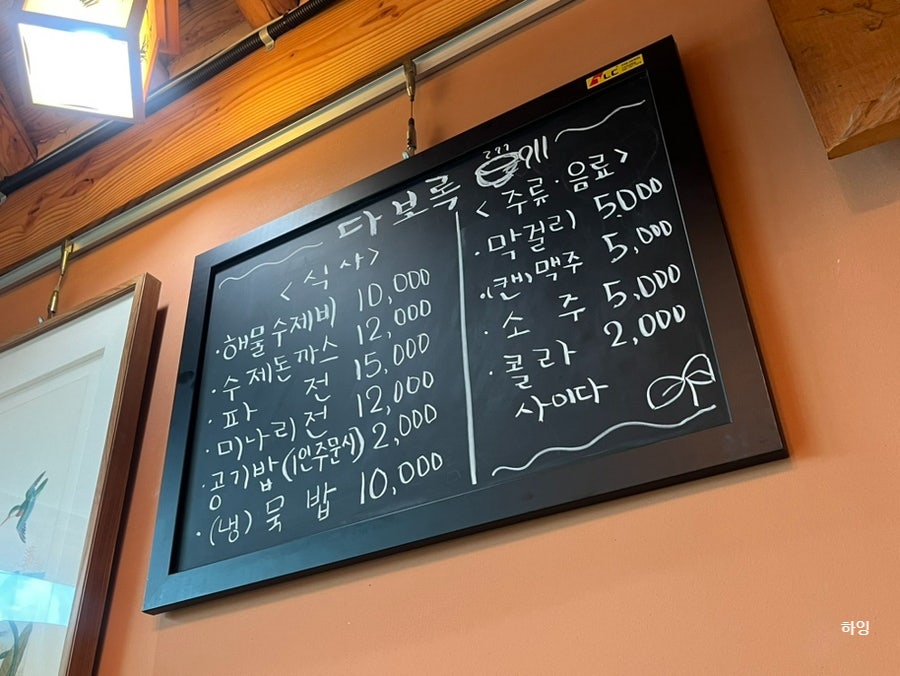 ALC
다보록
<식사>
·해물수제비 10,000
·수제돈까스 12,000
·파 전 15,000
·미나리전 12,000
·공기밥(1인주문시) 2,000
·(냉) 묵 밥 10,000
<주류·음료>
·막걸리 5,000
·(캔)맥주 5,000
·소 주 5,000
·콜라 2,000
사이다
하잉